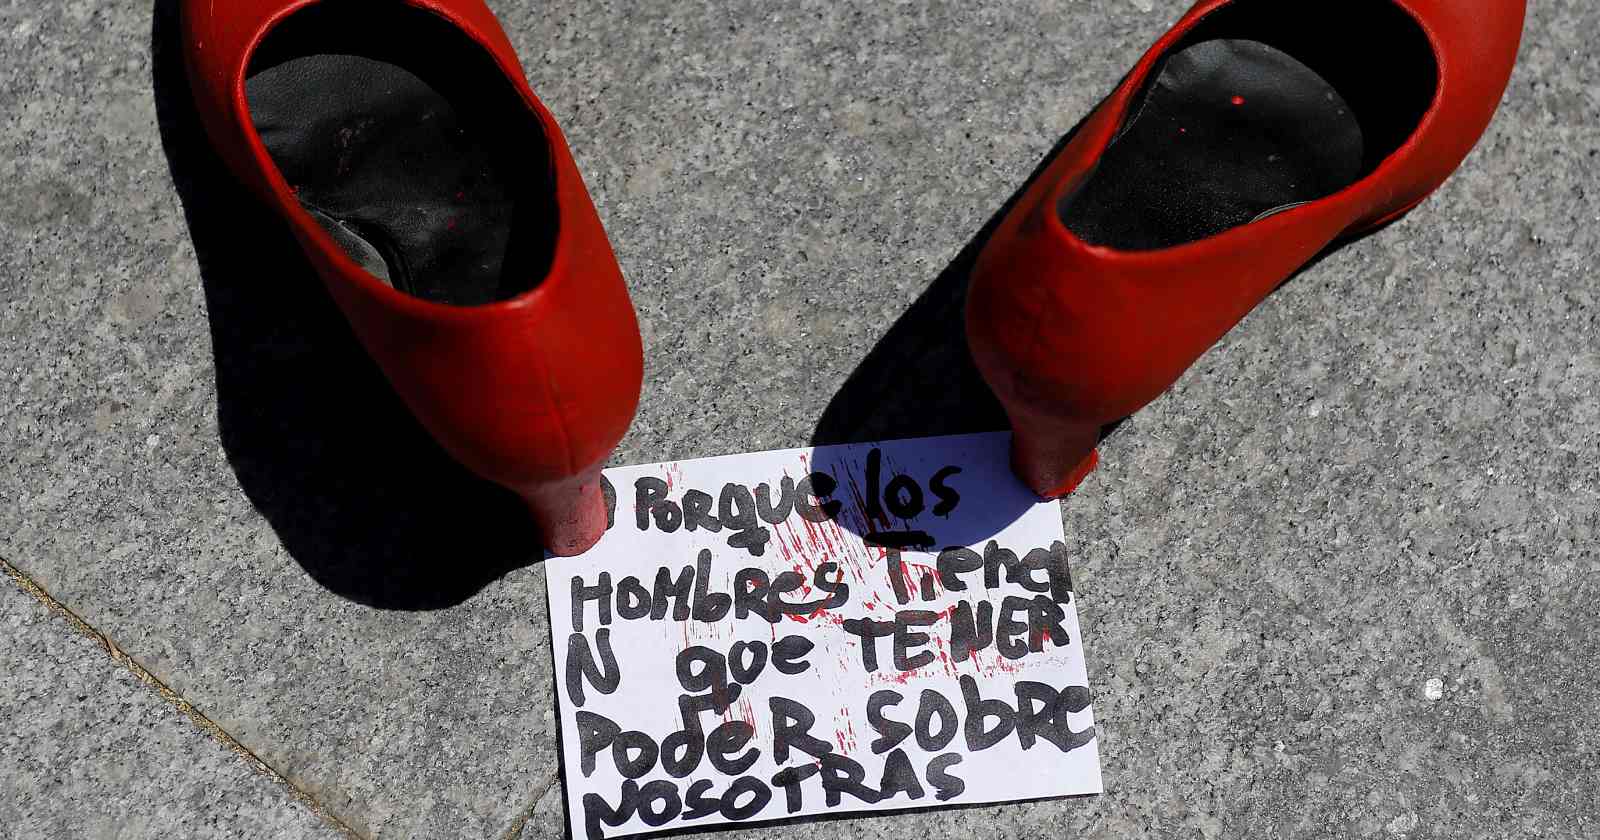 Porque los
Hombres Tiene
N que TENER
Poder sobre
NOSOTRAS